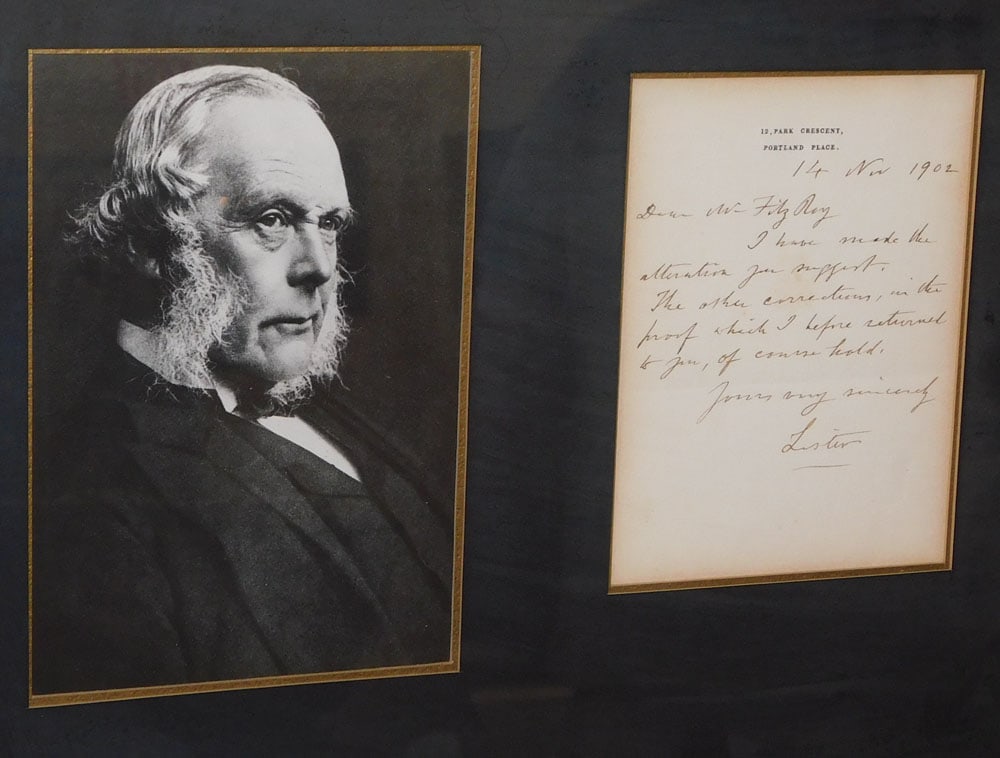 12, PARK CRESCENT,
PORTLAND PLACE.
14 Nov 1902
Dear Mr FitzRoy
I have made the
alteration you suggest.
The other corrections, in the
proof which I before returned
to you, of course hold.
Yours very sincerely
Lister